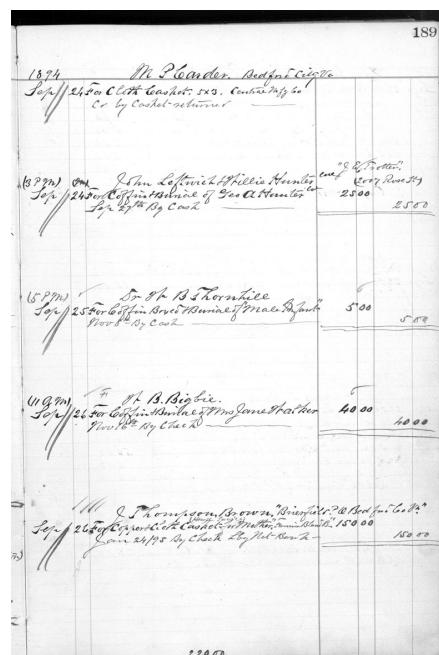 189
1894 M P Carder. Bedford City Va
Sep 24 For Cloth Casket. 5x3. Central Mfg Co
Cr by Casket returned
(3 P M) John Leftwich & Willie Hunter care "J E Trotter"
(2007 Rose St)
Sep 24 For Coffin & Burial of Geo A Hunter 25 00
Sep 27th By Cash 25 00
(5 P M) Dr W B Thornhill
Sep 25 For Coffin Boxed & Burial of Male Infant" 5 00
Nov 8th By Cash 5 00
(11 a m) W. B. Bigbie.
Sep 26 For Coffin & Burial of Mrs Jane Walker 40 00
Nov 6th By Check 40 00
J Thompson Brown. "Brierfield" Bedford Co Va"
Sep 26 For Copper Cloth Casket Mother 150 00
Jan 24/95 By Check Lby Nat Bank 150 00